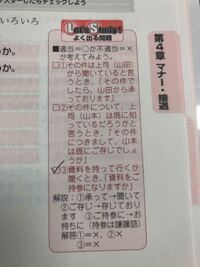 スターしたらチェック
いろいろ
うか。
か。
Let's Study!
よく出る問題
■適当=○か不適当=×
か考えてみよう。
□①その件は上司（山田）
から聞いていると言
うとき、「その件で
したら、山田から承
っております」
□②その件について、上
司（山本）は既に知
っているだろうかと
言うとき、「その件
につきまして、山本
は既にご存じでしょ
うか」
□③資料を持って行くか
聞くとき、「資料をご
持参になりますか」
解説：①承って→聞いて
②ご存じ→存じてお
ります ③ご持参に→お
持ちに（持参は謙譲語）
解答①＝×、②＝×
③＝×
第4章 マナー・接遇